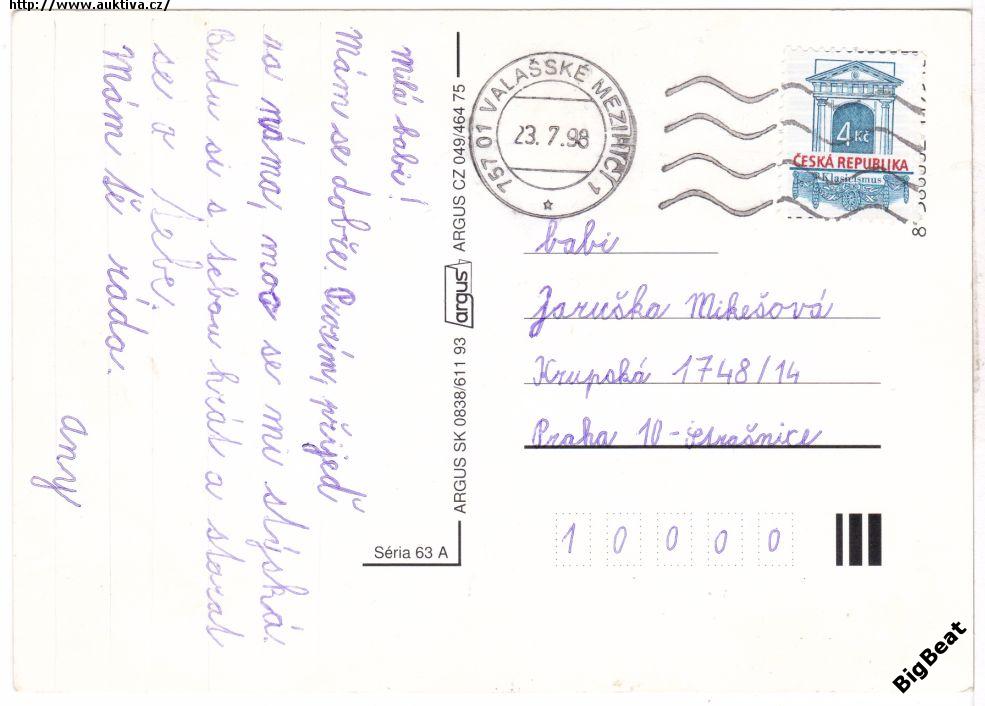 http://www.auktiva.cz/
Milá babi!
Mám se dobře. Prosím, přijeď
za náma, moc se mi stýská.
Budu si s tebou hrát a starat
se o Tebe.
Mám tě ráda.
any
Séria 63 A
ARGUS SK 0838/611 93 argus ARGUS CZ 049/464 75
757 01 VALAŠSKÉ MEZIŘÍČÍ 1
23.7.98
4 Kč
ČESKÁ REPUBLIKA
Klasicismus
babi
Jaruška Mikešová
Krupská 1748/14
Praha 10-Strašnice
10000
BigBeat